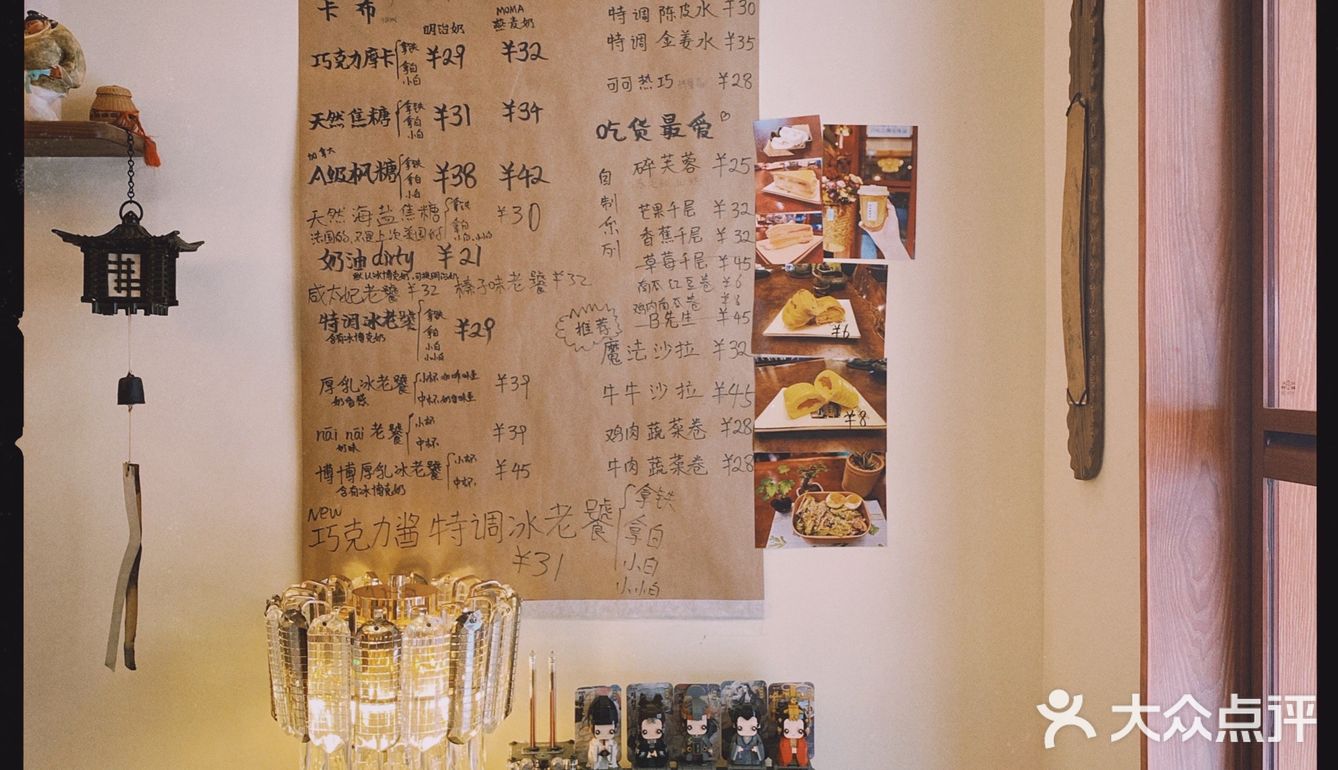 卡布
明治奶
MOMA
燕麦奶
巧克力摩卡 拿铁 拿白 小白 ¥29 ¥32
天然焦糖 拿铁 拿白 小白 ¥31 ¥34
加拿大
A级枫糖 拿铁 拿白 小白 ¥38 ¥42
天然海盐焦糖 拿铁 拿白 ¥30
奶油dirty ¥21
咸太妃老饕 ¥32 榛子味老饕 ¥32
特调冰老饕 拿铁 拿白 小白 小小白 ¥29
含有冰博克奶
厚乳冰老饕 ¥39
奶香感
nāi nāi 老饕 小杯 中杯 ¥39
奶味
博博厚乳冰老饕 小杯 中杯 ¥45
含有冰博克奶
New
巧克力酱特调冰老饕 拿铁 拿白 小白 小小白
¥31
特调 陈皮水 ¥30
特调 金姜水 ¥35
可可热巧 ¥28
吃货最爱
自制系列
碎芙蓉 ¥25
芒果千层 ¥32
香蕉千层 ¥32
草莓千层 ¥45
南瓜红豆卷 ¥6
鸡肉南瓜卷 ¥8
推荐
B先生 ¥45
魔法沙拉 ¥32
牛牛沙拉 ¥45
鸡肉蔬菜卷 ¥28
牛肉蔬菜卷 ¥28
¥6
¥8
大众点评